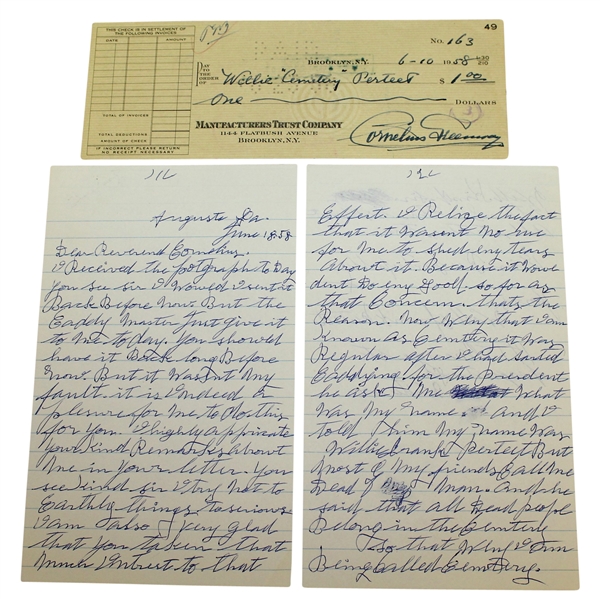 THIS CHECK IS IN SETTLEMENT OF
THE FOLLOWING INVOICES
DATE AMOUNT
TOTAL OF INVOICES
TOTAL DEDUCTIONS
AMOUNT OF CHECK
IF INCORRECT PLEASE RETURN
NO RECEIPT NECESSARY
49
No. 163
BROOKLYN, N.Y. 6-10 1958 1-30
210
PAY TO THE ORDER OF Willie "Cemetery" Perteet $ 1.00
One DOLLARS
MANUFACTURERS TRUST COMPANY
1144 FLATBUSH AVENUE
BROOKLYN, N.Y.
Cornelius Greenway
Augusta Ga.
June 18. 58
Dear Reverend Cornelius.
I Received the fotgraph to Day
you see sir I Would I sent it
Back Before Now. But the
Caddy Master Just give it
to Me to day. You should
have it Back long Before
Now. But it Wasent My
fault. it is indeed a
plesure for Me to Do this
for You. I highly appricate
your Kind Remarks about
Me in Your letter. You
see kind sir I try Not to
Earthly things to serious
I am Also very glad
that You taken that
Much Intrest to that
Effert. I Relize the fact
that it Wasent No use
for Me to shed eny tears
About it. Because it Wove
dent Do eny Good. so far as
that Concern. thats the
Reason. Now Why that I am
Known as Cemetery it Was
Regular after I had sarted
Caddying for the President
he as Me What
Was My Name. And I
told him My Name Was
Willie Frank Perteet But
Most of My friends Call Me
Dead Man. And he
said that all Dead people
Belong in the Cemetery
So that Why I am
Being Called Cemetery.